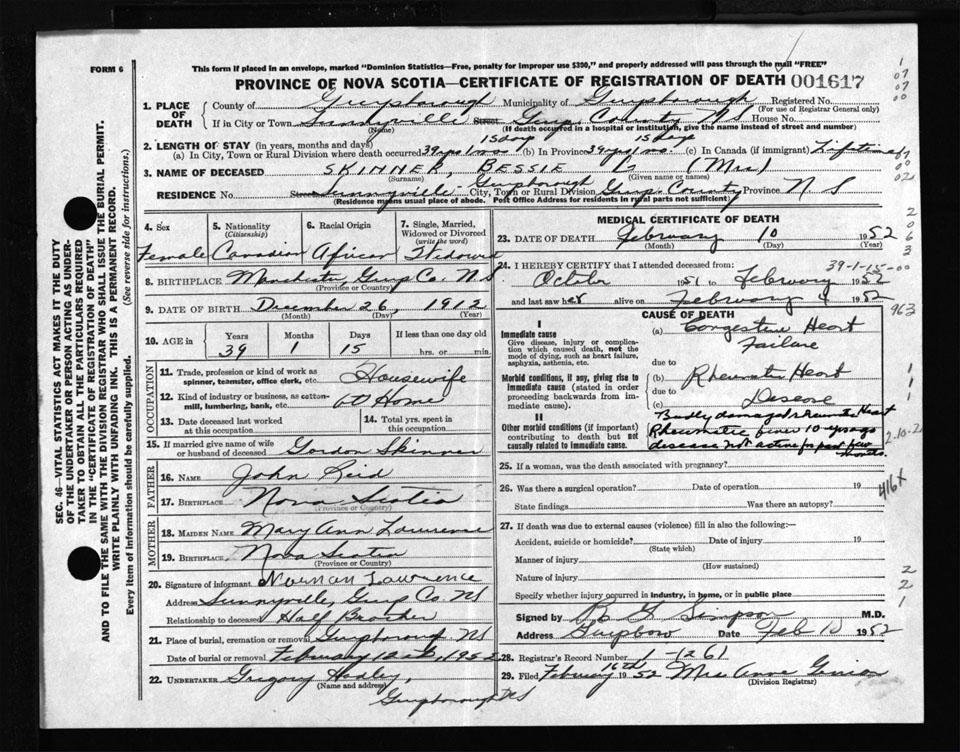 FORM 6
This form if placed in an envelope, marked "Dominion Statistics—Free, penalty for improper use $300," and properly addressed will pass through the mail "FREE"
PROVINCE OF NOVA SCOTIA—CERTIFICATE OF REGISTRATION OF DEATH 001617
1. PLACE OF DEATH
County of Guysborough Municipality of Guysborough Registered No.
(For use of Registrar General only)
If in City or Town Sunnyville Street Guys. County NS House No.
(Name) (If death occurred in a hospital or institution, give the name instead of street and number)
2. LENGTH OF STAY (in years, months and days) 15 days 15 days
(a) In City, Town or Rural Division where death occurred 39 yrs 1 mo (b) In Province 39 yrs 1 mo (c) In Canada (if immigrant) Lifetime
3. NAME OF DECEASED SKINNER, BESSIE (Mrs)
(Surname) (Given name or names)
RESIDENCE No. Street Sunnyville - Guysborough City, Town or Rural Division Guys. County Province N S
(Residence means usual place of abode. Post Office Address for residents in rural parts not sufficient)
4. Sex
Female
5. Nationality
(Citizenship)
Canadian
6. Racial Origin
African
7. Single, Married, Widowed or Divorced
(write the word)
Widowed
8. BIRTHPLACE Manchester, Guys Co. NS
(Province or Country)
9. DATE OF BIRTH December 26, 1912
(Month) (Day) (Year)
10. AGE in Years Months Days If less than one day old
39 1 15 hrs. or min.
OCCUPATION
11. Trade, profession or kind of work as spinner, teamster, office clerk, etc. Housewife
12. Kind of industry or business, as cotton-mill, lumbering, bank, etc. At Home
13. Date deceased last worked at this occupation
14. Total yrs. spent in this occupation
15. If married give name of wife or husband of deceased Gordon Skinner
FATHER
16. NAME John Reid
17. BIRTHPLACE Nova Scotia
(Province or Country)
MOTHER
18. MAIDEN NAME Mary Ann Lawrence
19. BIRTHPLACE Nova Scotia
(Province or Country)
20. Signature of informant Norman Lawrence
Address Sunnyville, Guys Co. NS
Relationship to deceased Half Brother
21. Place of burial, cremation or removal Guysborough NS
Date of burial or removal February 12th, 1952
22. UNDERTAKER Gregory Hadley,
(Name and address)
Guysborough NS
MEDICAL CERTIFICATE OF DEATH
23. DATE OF DEATH February 10 1952
(Month) (Day) (Year)
39-1-15-00
24. I HEREBY CERTIFY that I attended deceased from:
October 1951 to February 1952
and last saw her alive on February 4 1952
CAUSE OF DEATH
I
Immediate cause
Give disease, injury or complication which caused death, not the mode of dying, such as heart failure, asphyxia, asthenia, etc.
(a) Congestive Heart Failure
due to
Morbid conditions, if any, giving rise to immediate cause (stated in order proceeding backwards from immediate cause).
(b) Rheumatic Heart
due to
(c) Disease
II
Other morbid conditions (if important) contributing to death but not causally related to immediate cause.
Badly damaged rheumatic Heart
Rheumatic fever 10 yrs ago
disease not active for past few months.
25. If a woman, was the death associated with pregnancy?
26. Was there a surgical operation? Date of operation 19
State findings Was there an autopsy?
27. If death was due to external causes (violence) fill in also the following:—
Accident, suicide or homicide? Date of injury 19
(State which)
Manner of injury
(How sustained)
Nature of injury
Specify whether injury occurred in industry, in home, or in public place
Signed by Simpson M.D.
Address Guysboro Date Feb 10 1952
28. Registrar's Record Number 1-1261
29. Filed February 16th 1952 Mrs Anne
(Division Registrar)
963
416X
SEC. 46—VITAL STATISTICS ACT MAKES IT THE DUTY
OF THE UNDERTAKER OR PERSON ACTING AS UNDER-
TAKER TO OBTAIN ALL THE PARTICULARS REQUIRED
IN THE "CERTIFICATE OF REGISTRATION OF DEATH"
AND TO FILE THE SAME WITH THE DIVISION REGISTRAR WHO SHALL ISSUE THE BURIAL PERMIT.
WRITE PLAINLY WITH UNFADING INK. THIS IS A PERMANENT RECORD.
Every item of information should be carefully supplied. (See reverse side for instructions.)